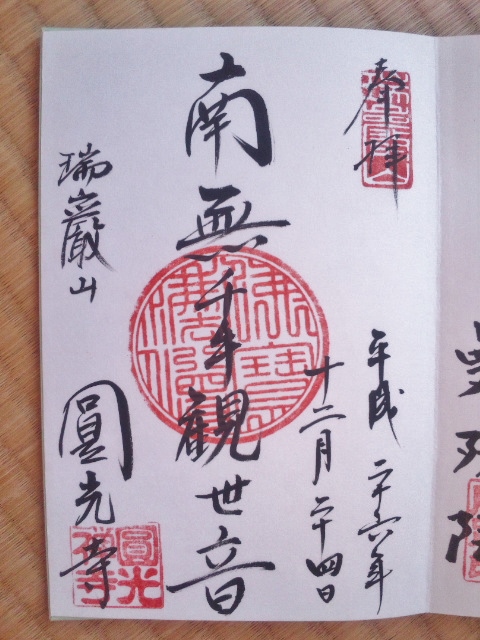 奉拝
平成二十六年
十二月二十四日
南無千手観世音
瑞巌山
圓光寺
圓光
禅寺